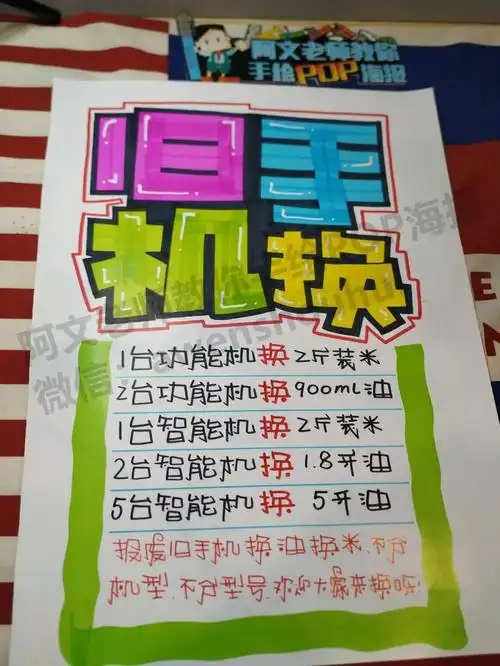 阿文老师教你
手绘POP海报
旧手
机换
1台功能机换2斤装米
2台功能机换900mL油
1台智能机换2斤装米
2台智能机换1.8升油
5台智能机换5升油
报废旧手机换油换米.不分
机型.不分型号.欢迎大家来换呀.
阿文老师教你手绘POP海报